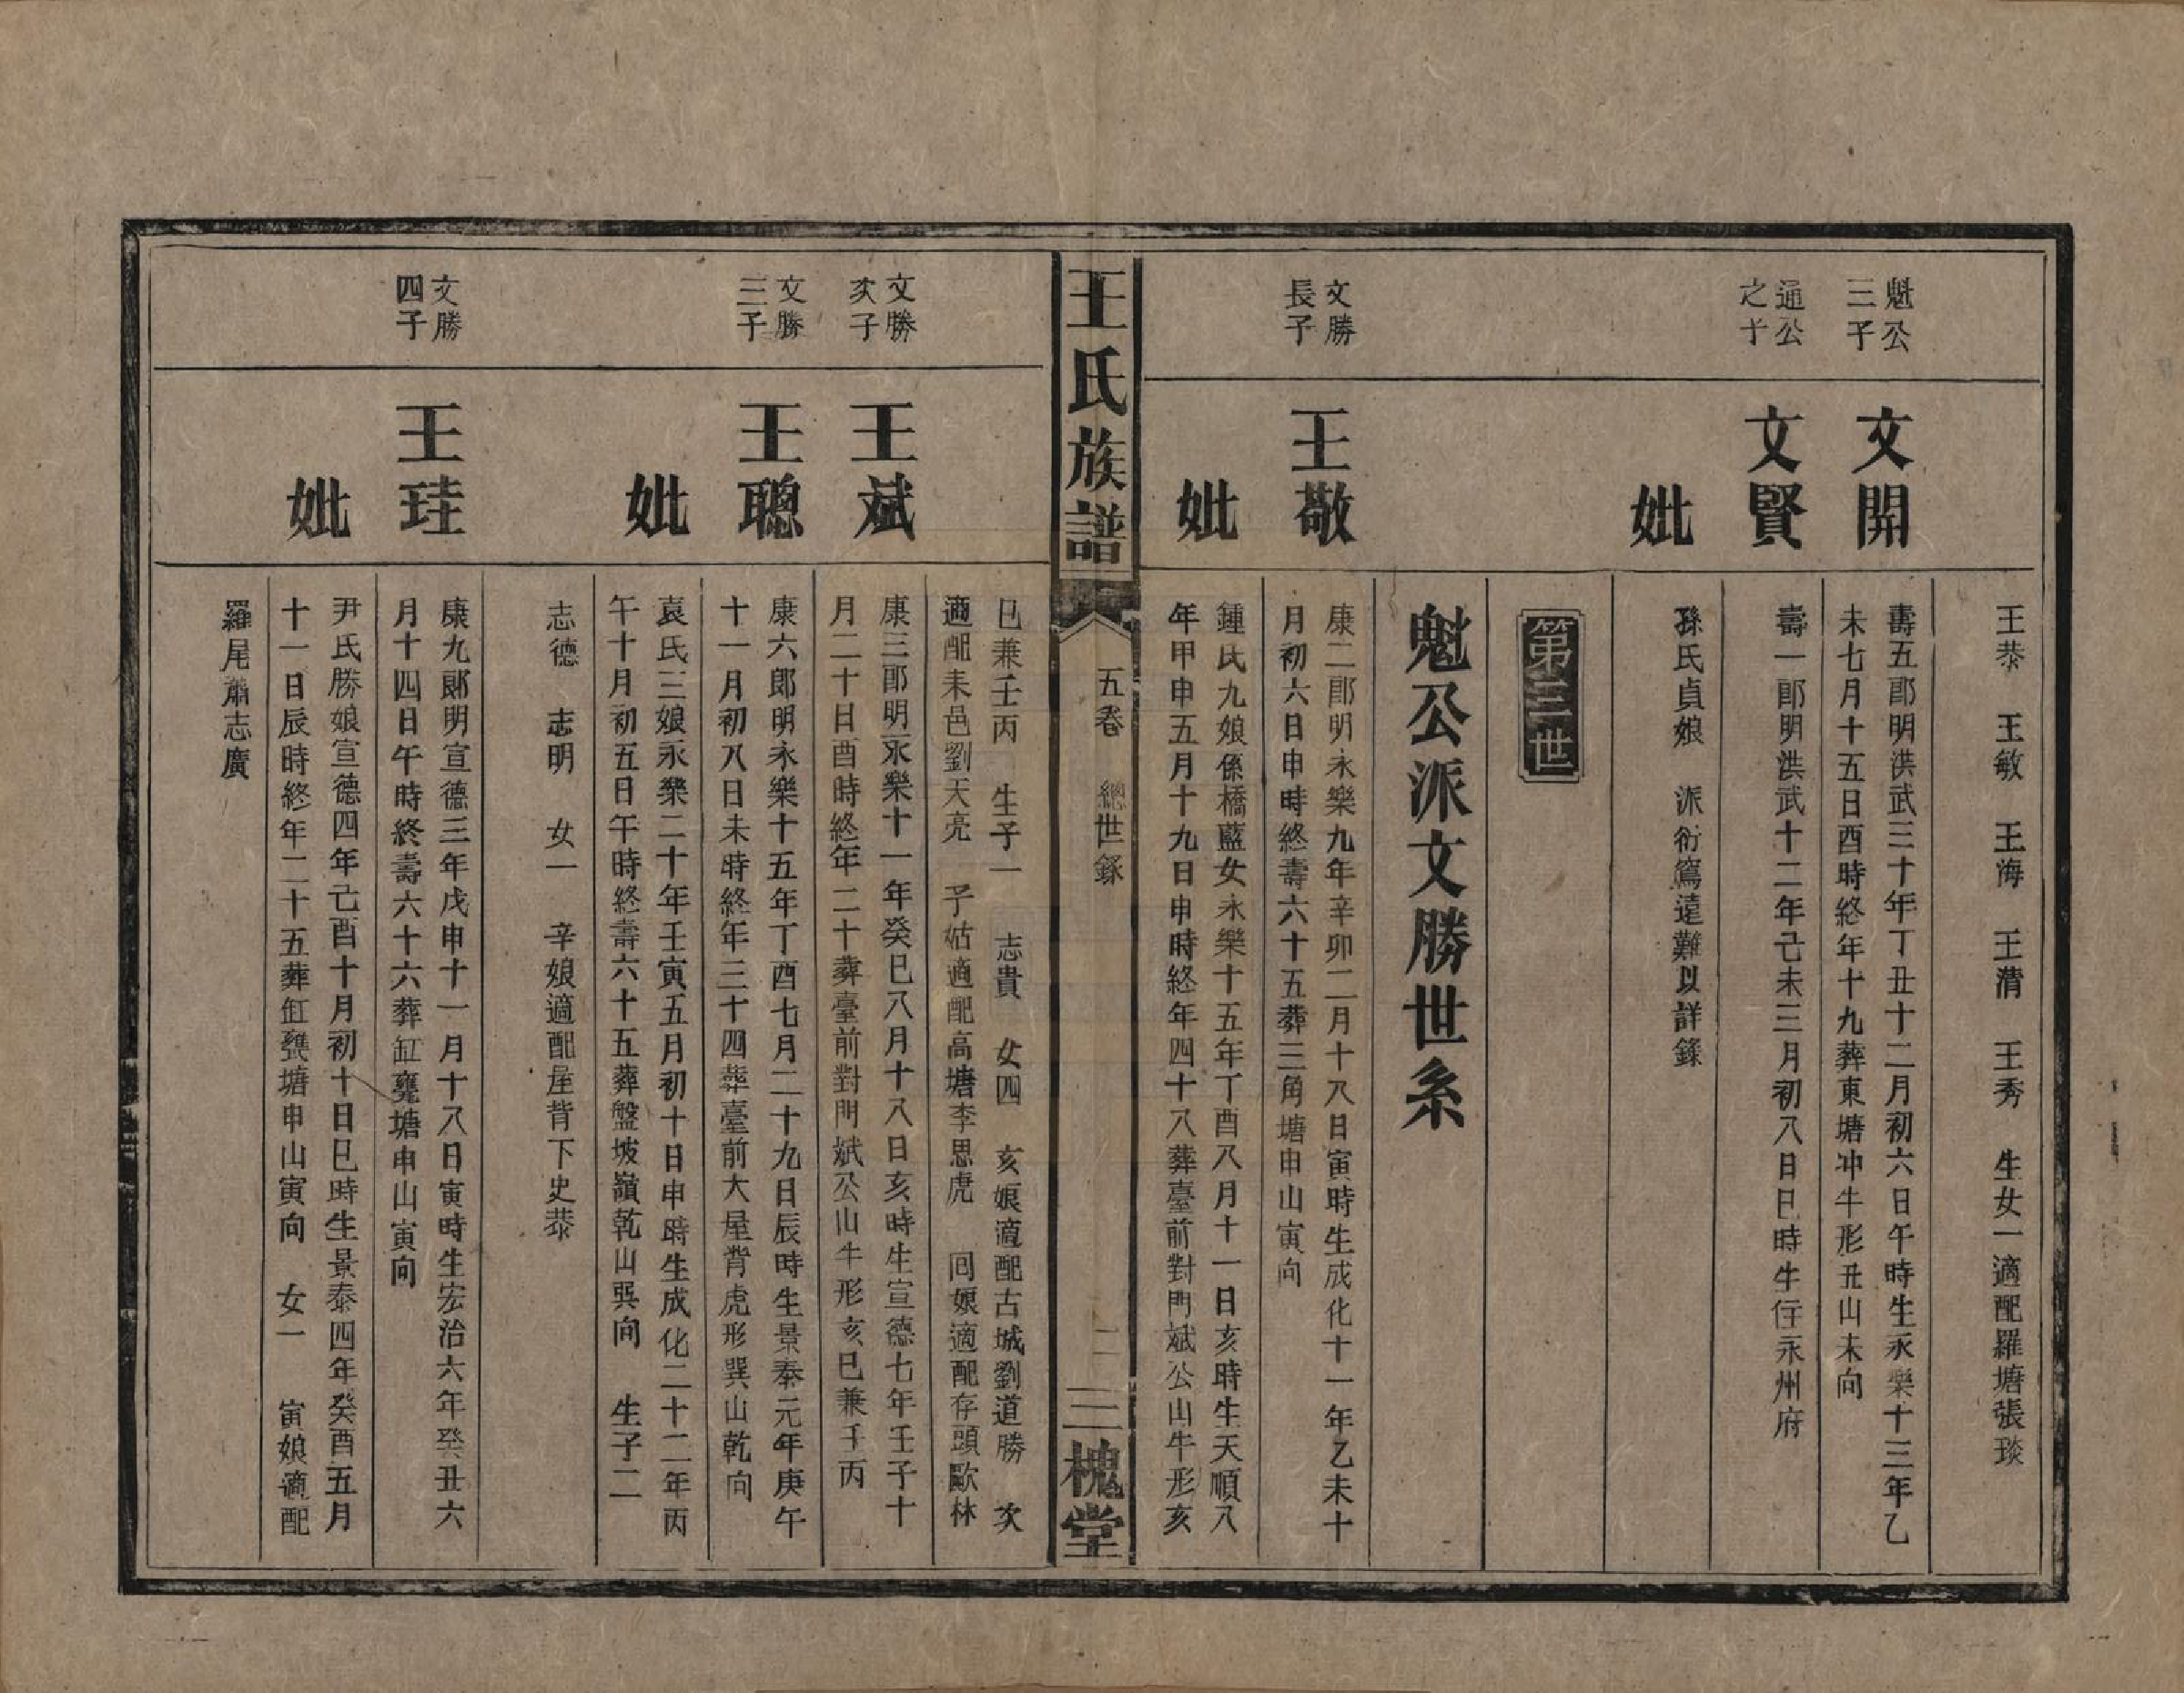 王恭　王敏　王海　王清　王秀　生女一適配羅塘張琰
魁公
三子
文開
壽五郎明洪武三十年丁丑十二月初六日午時生永樂十三年乙
未七月十五日酉時終年十九葬東塘冲牛形丑山未向
通公
之子
文賢
壽一郎明洪武十二年己未三月初八日巳時生住永州府
妣
孫氏貞娘　派衍篤遠難以詳錄
第三世
魁公派文勝世系
文勝
長子
王敬
康二郎明永樂九年辛卯二月十八日寅時生成化十一年乙未十
月初六日申時終壽六十五葬三角塘申山寅向
妣
鍾氏九娘係橋藍女永樂十五年丁酉八月十一日亥時生天順八
年甲申五月十九日申時終年四十八葬臺前對門斌公山牛形亥
王氏族譜
五卷　總世錄
二
三槐堂
巳兼壬丙　生子一　志貴　女四　亥娘適配古城劉道勝　次
適配耒邑劉天亮　子姑適配高塘李思虎　回娘適配存頭歐林
文勝
次子
王斌
康三郎明永樂十一年癸巳八月十八日亥時生宣德七年壬子十
月二十日酉時終年二十葬臺前對門斌公山牛形亥巳兼壬丙
文勝
三子
王聰
康六郎明永樂十五年丁酉七月二十九日辰時生景泰元年庚午
十一月初八日未時終年三十四葬臺前大屋背虎形巽山乾向
妣
袁氏三娘永樂二十年壬寅五月初十日申時生成化二十二年丙
午十月初五日午時終壽六十五葬盤坡嶺乾山巽向　生子二
志德　志明　女一　辛娘適配屋背下史恭
文勝
四子
王珪
康九郎明宣德三年戊申十一月十八日寅時生宏治六年癸丑六
月十四日午時終壽六十六葬缸甕塘申山寅向
妣
尹氏勝娘宣德四年己酉十月初十日巳時生景泰四年癸酉五月
十一日辰時終年二十五葬缸甕塘申山寅向　女一　寅娘適配
羅尾蕭志廣